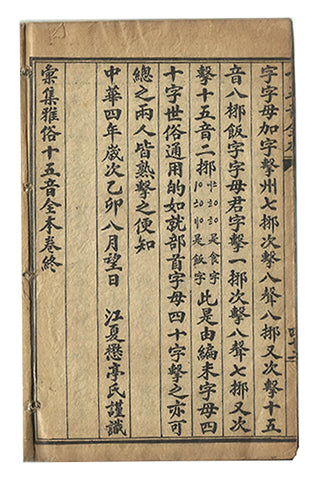 字字母加字擊州七挪次擊八聲八挪又次擊十五
音八挪飯字字母君字擊一挪次擊八聲七挪又次
擊十五音二挪是食字是飯字此是由編末字母四
十字世俗通用的如就部首字母四十字擊之亦可
總之兩人皆熟擊之便知
中華四年歲次乙卯八月望日 江夏懋亭氏謹識
彙集雅俗十五音全本卷終